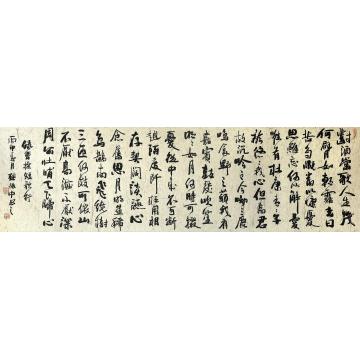 對酒當歌人生幾
何譬如朝露去日
苦多慨當以慷憂
思難忘何以解憂
唯有杜康青々子
衿悠々我心但為君
故沉吟至今呦々鹿
鳴食野之苹我有
嘉賓鼓瑟吹笙
明々如月何時可掇
憂從中來不可斷
絕越陌度阡枉用相
存契闊談讌心
念舊恩月明星稀
烏鵲南飛繞樹
三匝何枝可依山
不厭高海不厭深
周公吐哺天下歸心
錄曹操短歌行
丙申